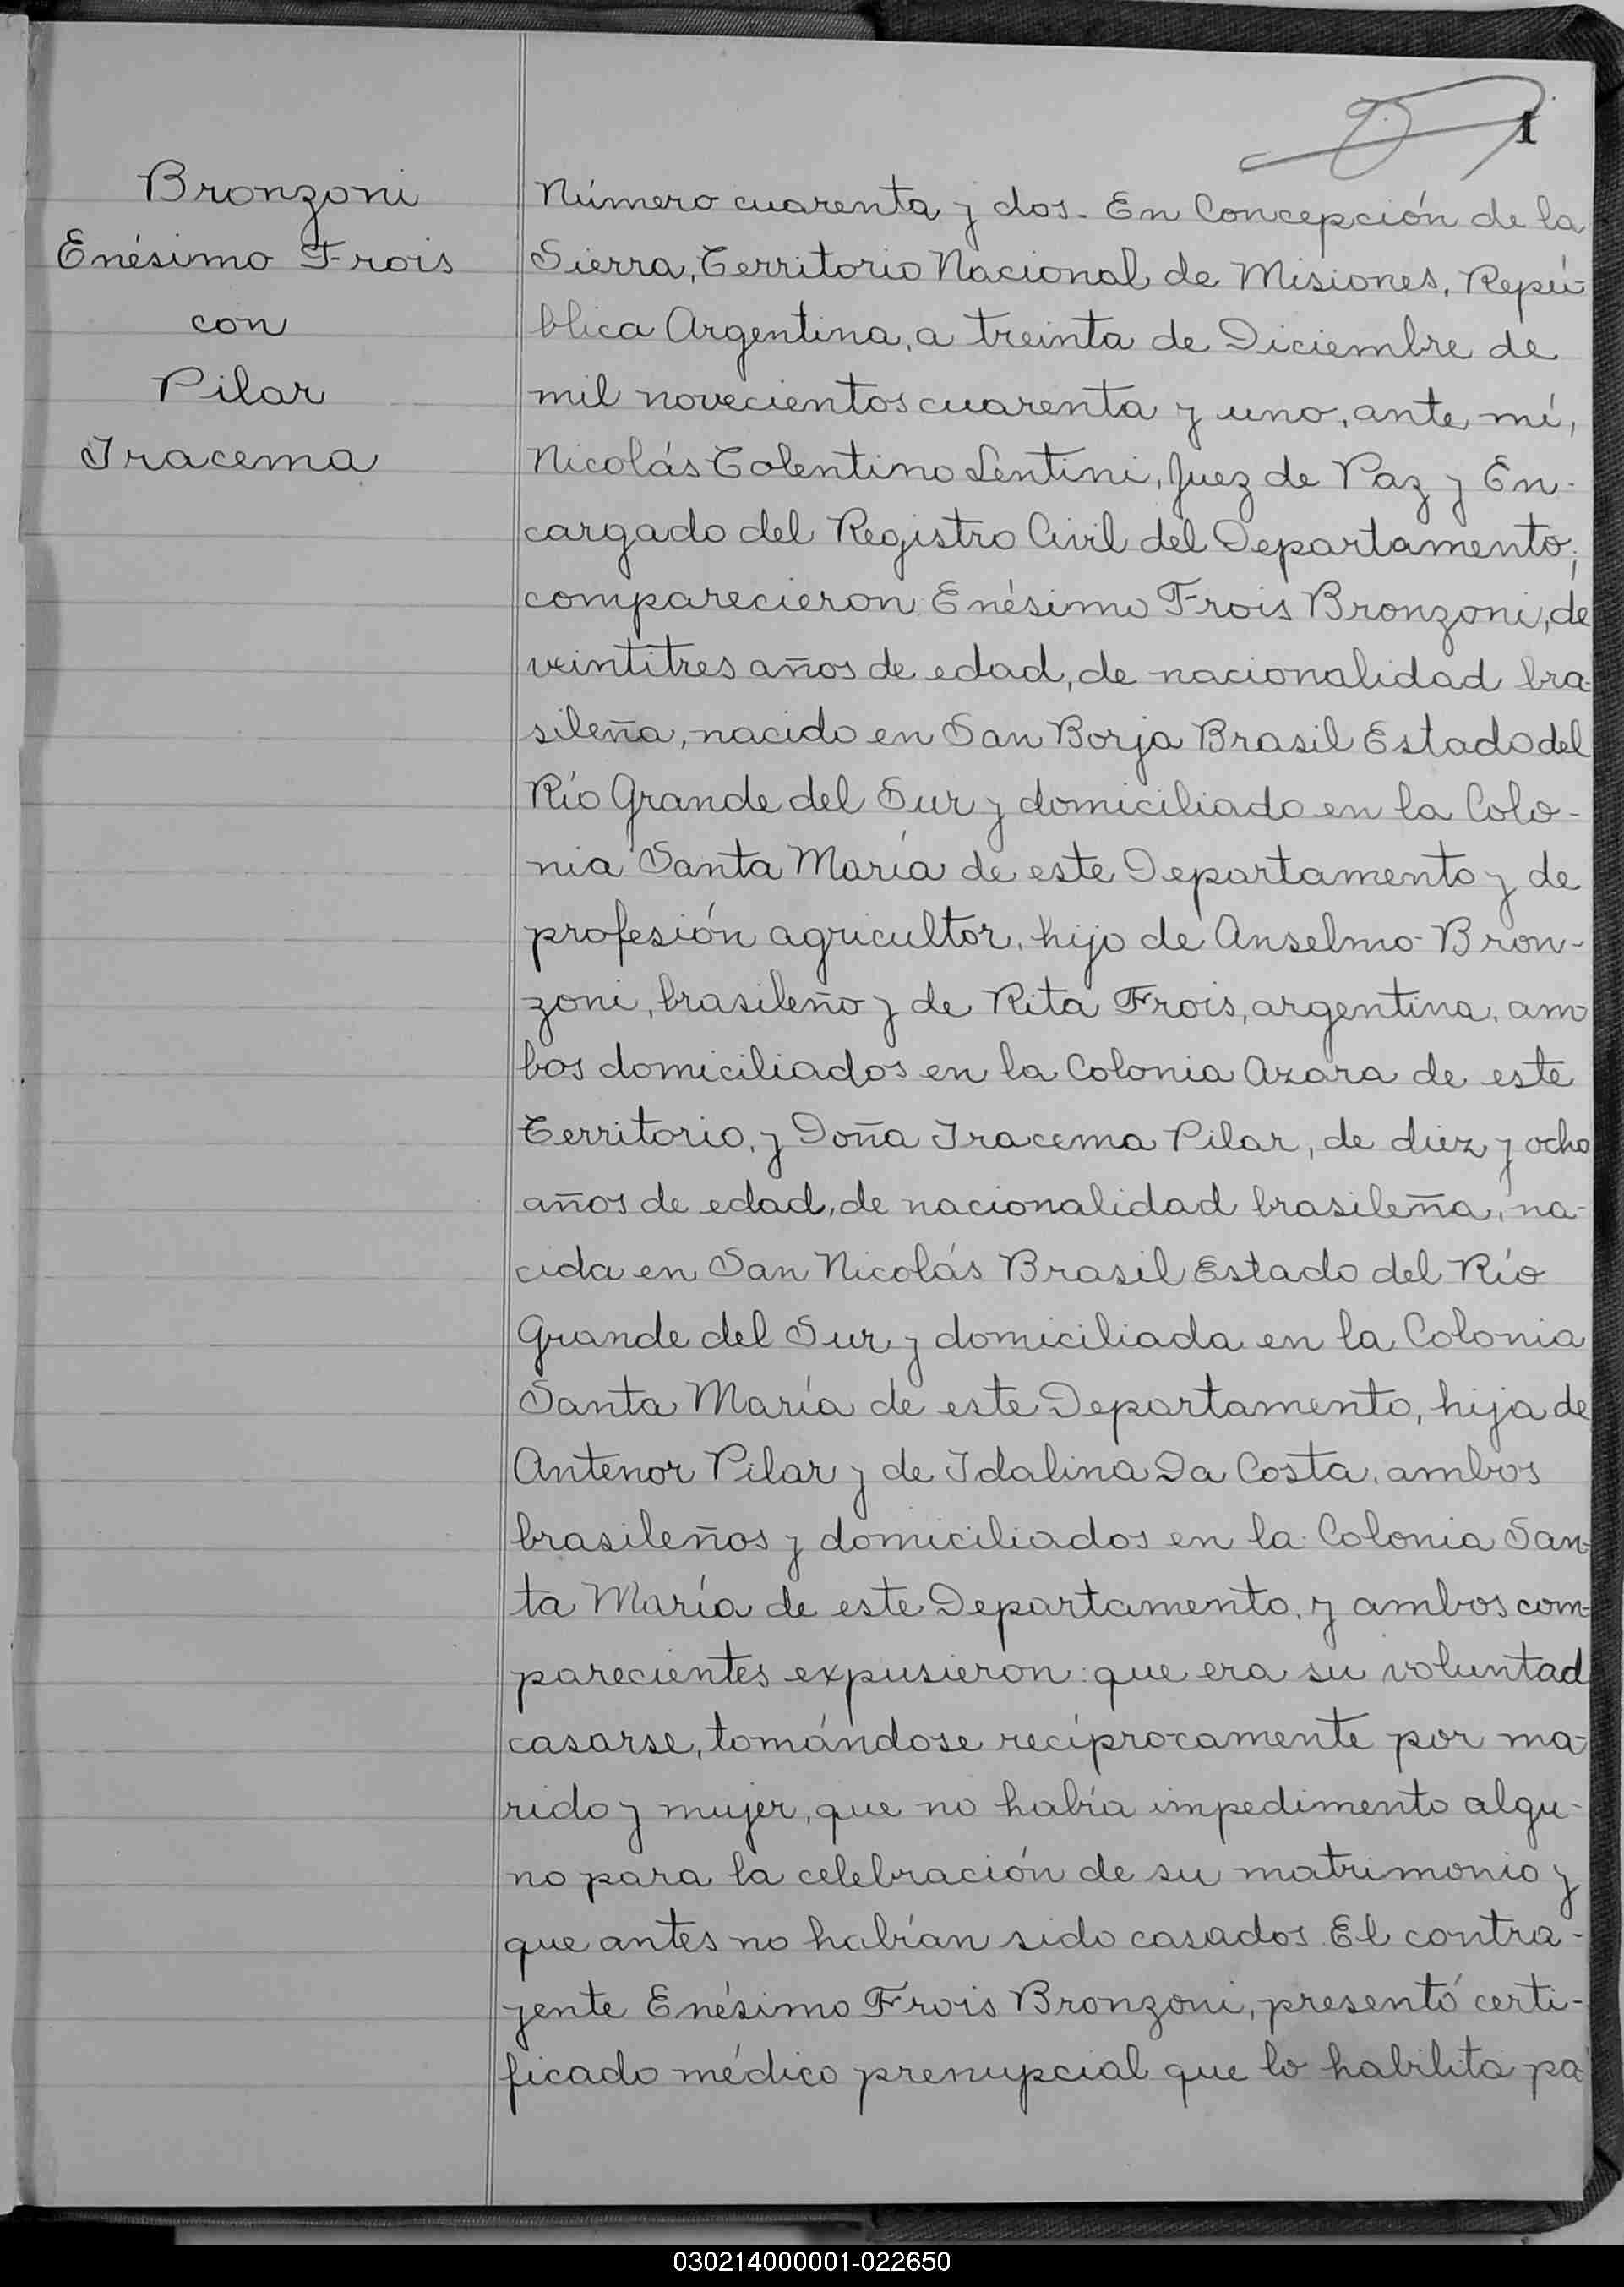 1
Bronzoni
Enésimo Frois
con
Pilar
Iracema
Número cuarenta y dos - En Concepción de la
Sierra, Territorio Nacional de Misiones, Repú-
blica Argentina, a treinta de Diciembre de
mil novecientos cuarenta y uno, ante mí,
Nicolás Tolentino Lentini, Juez de Paz y En-
cargado del Registro Civil del Departamento;
comparecieron: Enésimo Frois Bronzoni, de
veintitres años de edad, de nacionalidad bra-
sileña, nacido en San Borja Brasil Estado del
Río Grande del Sur y domiciliado en la Colo-
nia Santa María de este Departamento y de
profesión agricultor, hijo de Anselmo Bron-
zoni, brasileño y de Rita Frois, argentina, am
bos domiciliados en la Colonia Azara de este
Territorio, y Doña Iracema Pilar, de diez y ocho
años de edad, de nacionalidad brasileña, na-
cida en San Nicolás Brasil Estado del Río
Grande del Sur y domiciliada en la Colonia
Santa María de este Departamento, hija de
Antenor Pilar y de Idalina Da Costa, ambos
brasileños y domiciliados en la Colonia San-
ta María de este Departamento, y ambos com-
parecientes expusieron: que era su voluntad
casarse, tomándose recíprocamente por ma-
rido y mujer, que no había impedimento algu-
no para la celebración de su matrimonio y
que antes no habían sido casados. El contra-
yente Enésimo Frois Bronzoni, presentó certi-
ficado médico prenupcial que lo habilita pa
030214000001-022650